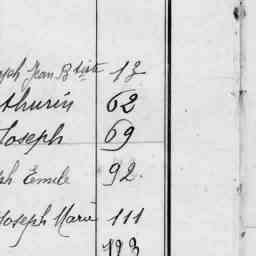 seph Jean Btiste 13
thurin 62
Joseph 69
ph Emile 92.
Joseph Marie 111
123